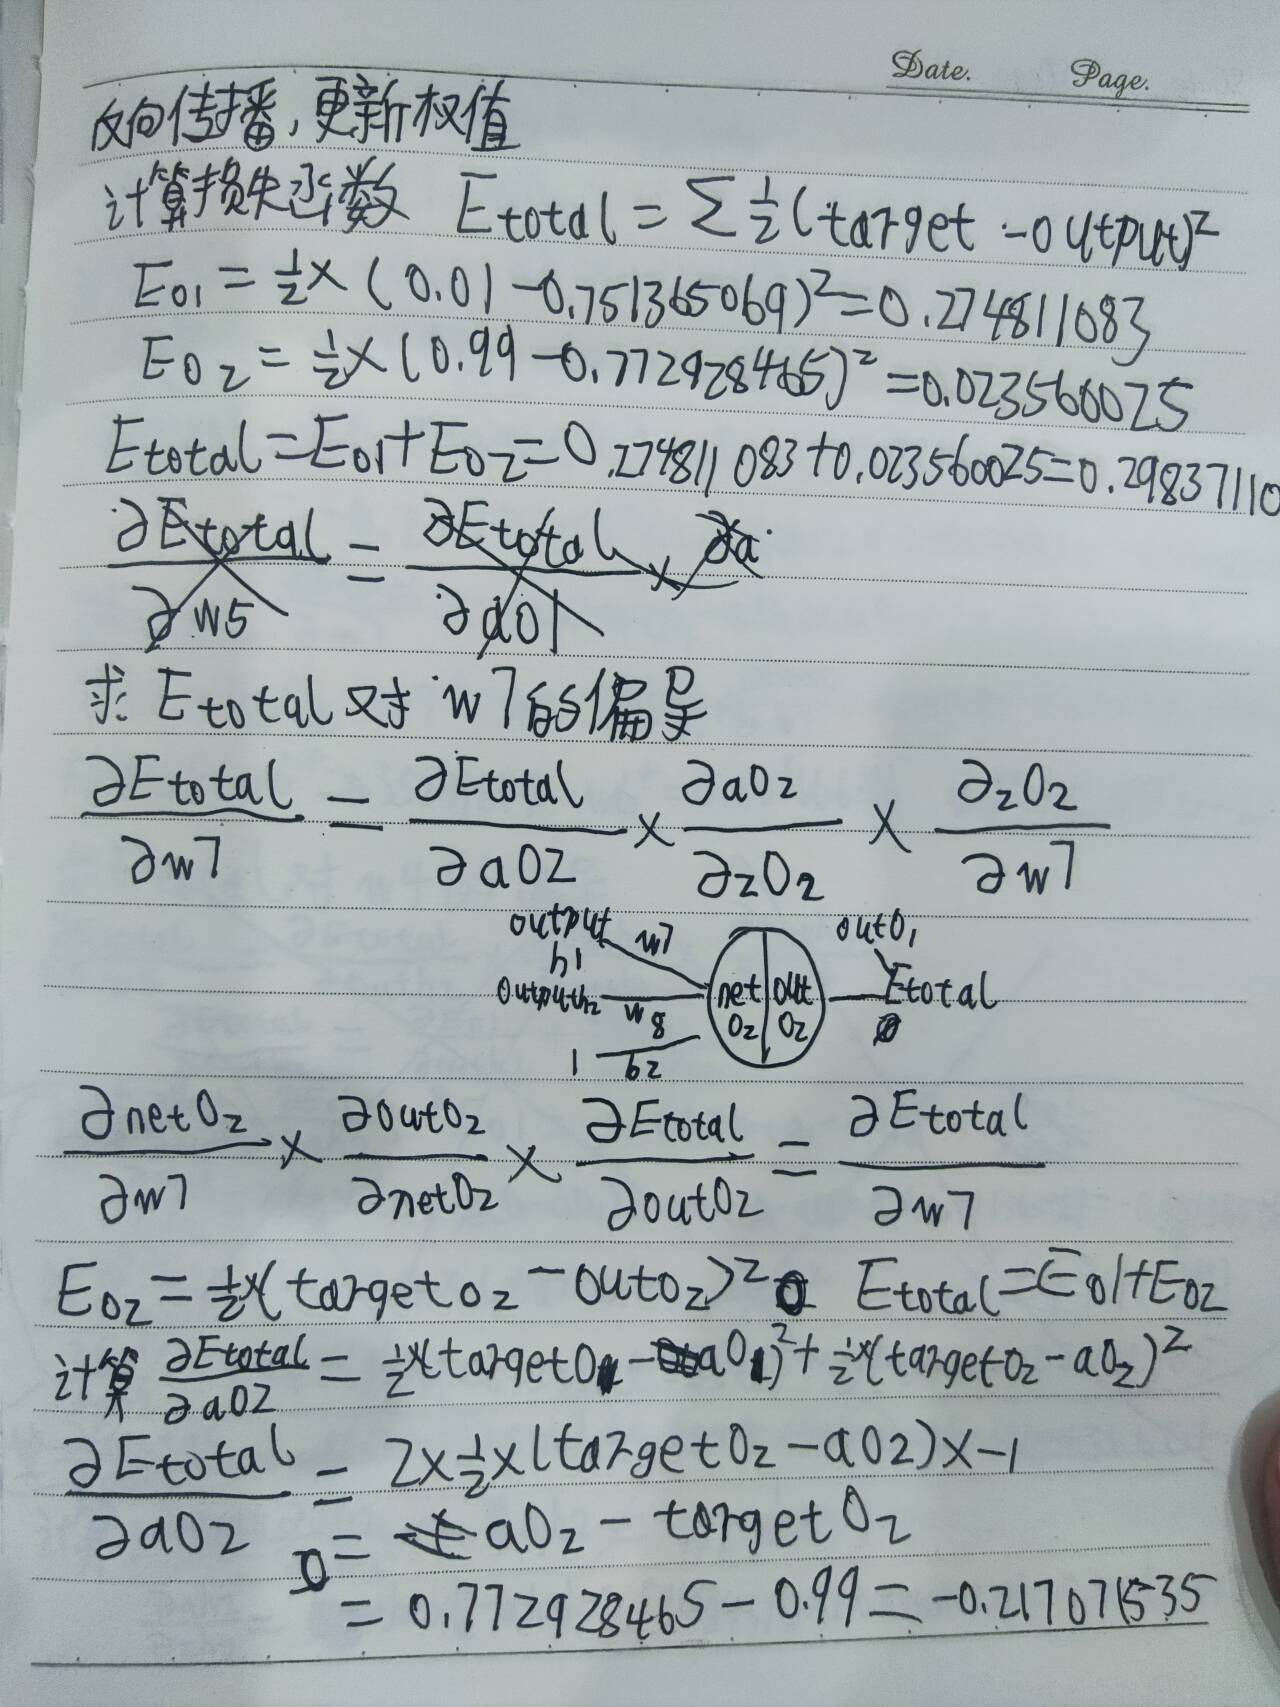 Date. Page.
反向传播,更新权值
计算损失函数 Etotal = Σ ½(target - output)²
Eo1 = ½ × (0.01 - 0.751365069)² = 0.274811083
Eo2 = ½ × (0.99 - 0.772928465)² = 0.023560025
Etotal = Eo1 + Eo2 = 0.274811083 + 0.023560025 = 0.29837110
求 Etotal 对 w7 的偏导
∂Etotal/∂w7 = ∂Etotal/∂aO2 × ∂aO2/∂zO2 × ∂zO2/∂w7
output h1 w7 outO1
outputh2 w8 net O2 out O2 Etotal
1 b2
∂netO2/∂w7 × ∂outO2/∂netO2 × ∂Etotal/∂outO2 = ∂Etotal/∂w7
EO2 = ½×(targetO2 - outO2)² Etotal = Eo1 + EO2
计算 ∂Etotal/∂aO2 = ½×(targetO1 - aO1)² + ½×(targetO2 - aO2)²
∂Etotal/∂aO2 = 2×½×(targetO2 - aO2)×-1
= aO2 - targetO2
= 0.772928465 - 0.99 = -0.217071535